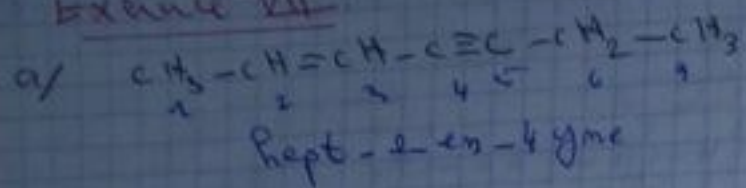 Exercice VII
a/ CH3-CH=CH-C≡C-CH2-CH3
1 2 3 4 5 6 7
hept-2-en-4 yne